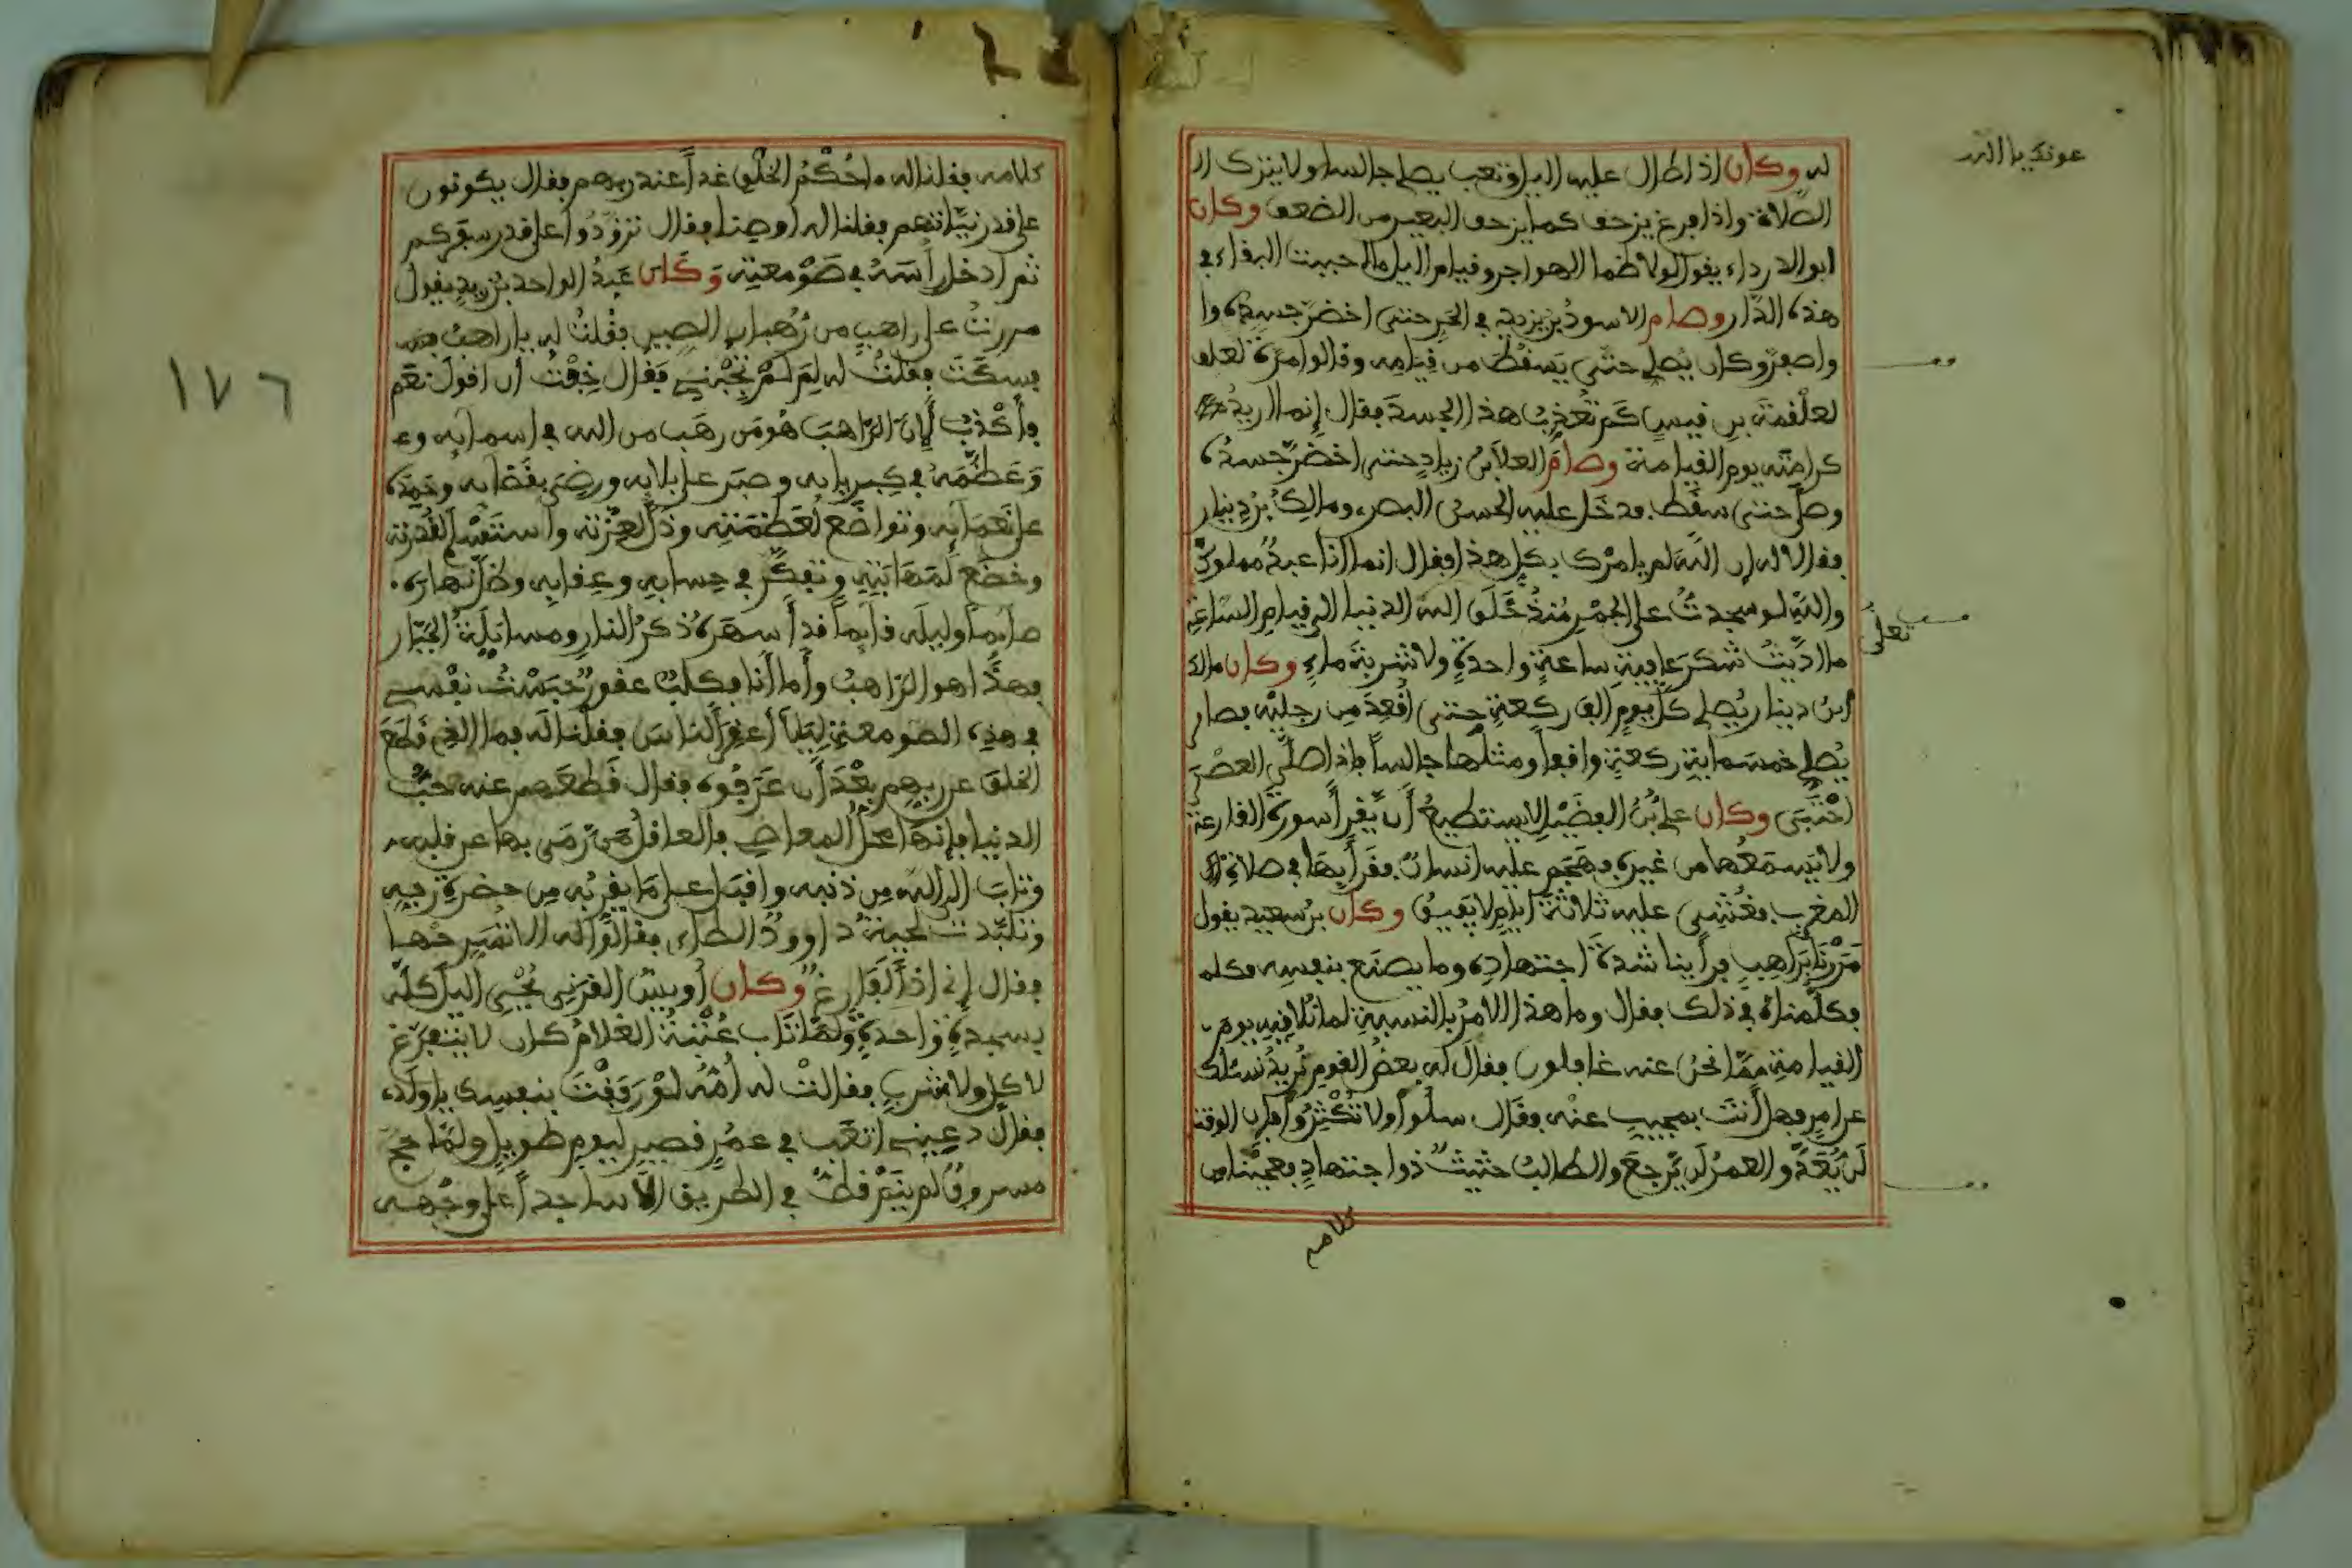 عونك يا الله
له وكان اذا طال عليه الليل وتعب يصلي جالسا ولا يترك ال
الصلاة واذا فرغ يزحف كما يزحف البعير من الضعف وكان
ابو الدرداء يقول لولا ظمأ الهواجر وقيام الليل ما احببت البقاء في
هذه الدار وصام الاسود بن يزيد في الحر حتى اخضر جسده وا
واصفر وكان يصلي حتى يسقط من قيامه وقالوا مرة لعلقـ
لعلقمة بن قيس كم تعذب هذا الجسد فقال انما اريد
كرامته يوم القيامة وصام العلاء بن زياد حتى اخضر جسده
وصلى حتى سقط فدخل عليه الحسن البصري ومالك بن دينار
فقالا له ان الله لم يامرك بكل هذا فقال انما انا عبد مملوك
والله لو سجدت على الجمر منذ خلق الله الدنيا الى قيام الساعة
تعلى
ما اديت شكر عافية ساعة واحدة ولا شربة ماء وكان مالك
ابن دينار يصلي كل يوم الف ركعة حتى اقعد من رجليه فصار
يصلي خمسمائة ركعة واقفا ومثلها جالسا فاذا صلى العصر
احتبى وكان علي بن الفضيل لا يستطيع ان يقرأ سورة القارعة
ولا يسمعها من غيره فهجم عليه انسان فقرأ بها في صلاة
المغرب فغشي عليه ثلاثة ايام لا يفيق وكان بن سعيد يقول
مررنا براهب فرأينا شدة اجتهاده وما يصنع بنفسه فكلمـ
فكلمناه في ذلك فقال وما هذا الامر بالنسبة لما نلاقيه يوم
القيامة مما نحن عنه غافلون فقال له بعض القوم نريد نسئلك
عن امر فهل انت بمجيب عنه فقال سلوا ولا تكثروا فان الوقت
لن يعد والعمر لن يرجع والطالب حثيث ذو اجتهاد فعجبنا من
كلامه
كلامه فقلنا له ما حكم الخلق غدا عند ربهم فقال يكونون
على قدر نياتهم فقلنا له اوصنا فقال تزودوا على قدر سفركم
ثم ادخل رأسه في صومعته وكان عبد الواحد بن زيد يقول
مررت على راهب من رهبان الصين فقلت له يا راهب فسـ
فسكت فقلت له لم لم تجبني فقال خفت ان اقول نعم
فأكذب لان الراهب هو من رهب من الله في اسمائه وعـ
وعظمه في كبريائه وصبر على بلائه ورضي بقضائه وحمده
على نعمائه وتواضع لعظمته وذل لعزته واستسلم لقدرته
وخضع لمهابته وتفكر في حسابه وعقابه وظل نهاره
صائما وليله قائما قد أسهره ذكر النار ومسائلة الجبار
فهذا هو الراهب وأما أنا فكلب عقور حبست نفسي
في هذه الصومعة ليلا أعقر الناس فقلنا له فما الذي قطع
الخلق عن ربهم بعد أن عرفوه فقال قطعهم عنه حب
الدنيا فإنها محل المعاصي فالعاقل من رمى بها عن قلبه
وتاب الى الله من ذنبه واقبل على ما يقربه من حضرة ربه
وتلبدت لحية داوود الطاءي فقالوا له الا تسرحها
فقال إني اذا لفارغ وكان أويس القرني يحيي الليل كله
بسجدة واحدة ولما تاب عتبة الغلام كان لا يتفرغ
لاكل ولا شرب فقالت له أمه لو رفقت بنفسك يا ولدي
فقال دعيني اتعب في عمر قصير ليوم طويل ولما حج
مسروق لم ينم قط في الطريق الا ساجدا على وجهه
١٧٦